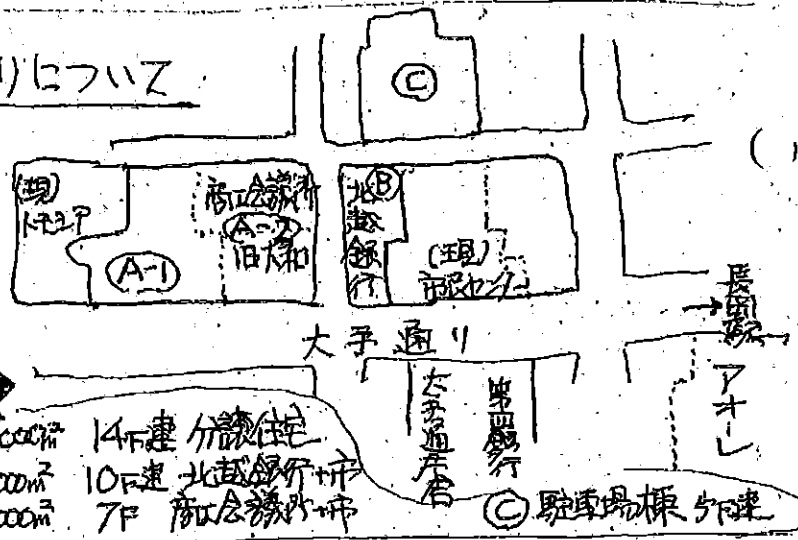 りについて
Ⓒ
(現)
トモシア
商工会議所
A-2
旧大和
A-1
Ⓑ
北越銀行
(現)
市民センター
大手通り
長岡駅
→
アオーレ
大手通庁舎
第四銀行
14F建 分譲住宅
000m² 10F建 北越銀行+市
000m² 7F 商工会議所+市
Ⓒ 駐車場棟 5F建